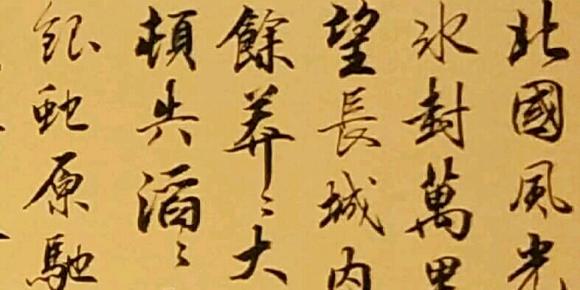 北國風光
冰封萬里
望長城内
餘莽〻大
頓失滔〻
銀虵原馳